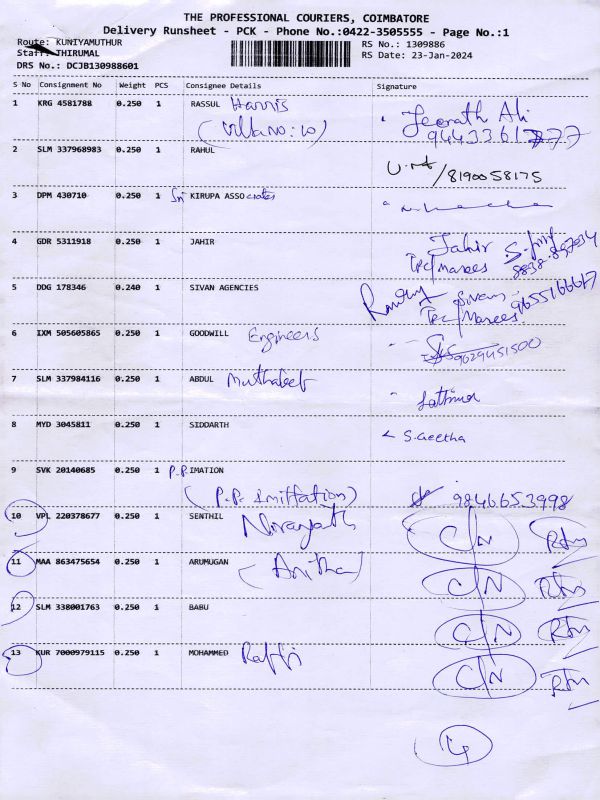 THE PROFESSIONAL COURIERS, COIMBATORE
Delivery Runsheet - PCK - Phone No.:0422-3505555 - Page No.:1
Route: KUNIYAMUTHUR
RS No.: 1309886
Staff: THIRUMAL
RS Date: 23-Jan-2024
DRS No.: DCJB130988601
S No Consignment No Weight PCS Consignee Details Signature
1 KRG 4581788 0.250 1 RASSUL Harris Jeerath Ali
(Villa No: 10) 
2 SLM 337968983 0.250 1 RAHUL
/8190058175
3 DPM 430710 0.250 1 Sri KIRUPA ASSOciates
4 GDR 5311918 0.250 1 JAHIR Jahir
5 DDG 178346 0.240 1 SIVAN AGENCIES Sivan 9655166617
6 IXM 505605865 0.250 1 GOODWILL Engineers
9629451500
7 SLM 337984116 0.250 1 ABDUL Muthaleeb
8 MYD 3045811 0.250 1 SIDDARTH S. Geetha
9 SVK 20140685 0.250 1 P.P. IMATION
(P.P. Imittation) 9846653998
10 VPL 220378677 0.250 1 SENTHIL C/N Rtn
11 MAA 863475654 0.250 1 ARUMUGAN (Anitha) C/N Rtn
12 SLM 338001763 0.250 1 BABU C/N Rtn
13 KUR 7000979115 0.250 1 MOHAMMED Raffi C/N Rtn